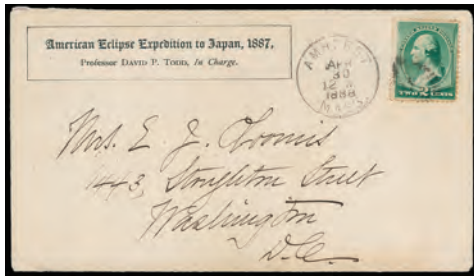 American Eclipse Expedition to Japan, 1887.
Professor DAVID P. TODD, In Charge.
AMHERST
APR
30
12 M
1888
MASS.
TWO 2 CENTS
Mrs. E. J. Loomis
1443, Stoughton Street
Washington
D.C.